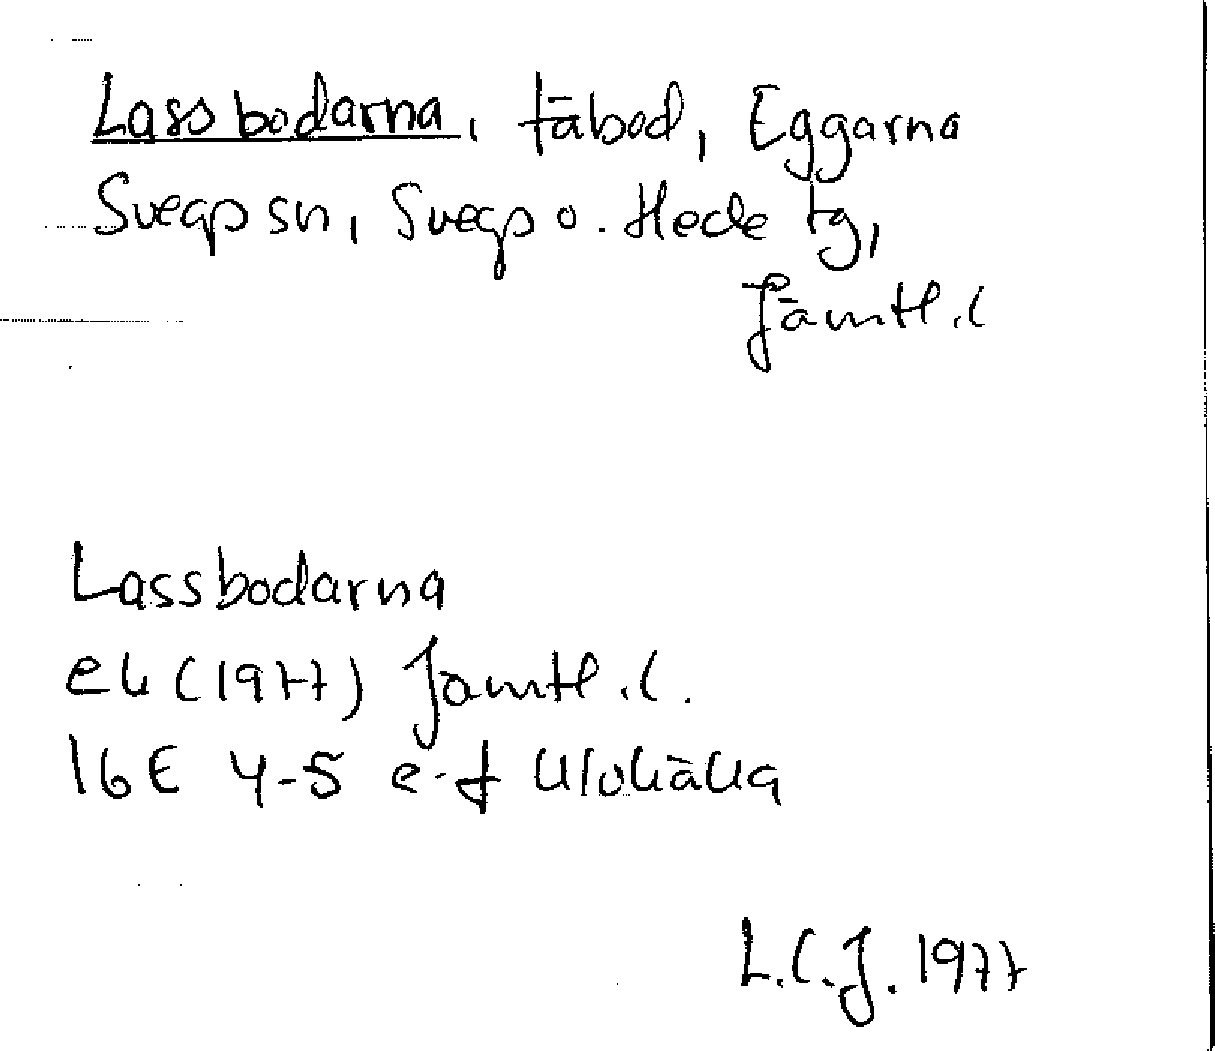 Lassbodarna, fäbod, Eggarna
Svegs sn, Svegs o. Hede tg,
Jämtl. l
Lassbodarna
ek (1977) Jämtl. l.
16E 4-5 e-f Ulvkälla
L.C.J. 1977